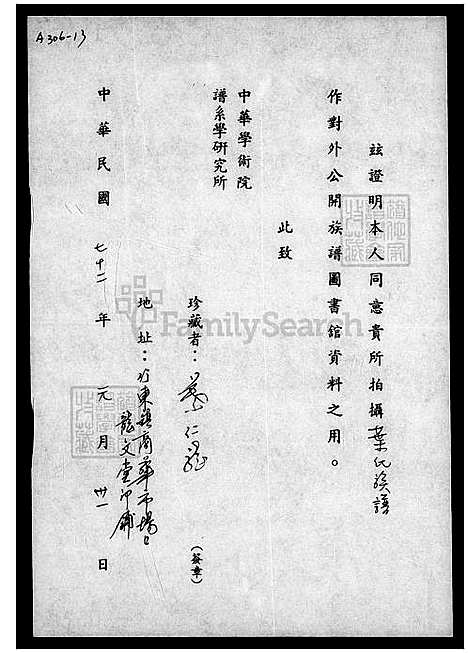 A306-13
茲證明本人同意貴所拍攝葉氏族譜
作對外公開族譜圖書館資料之用。
此致
中華學術院
譜系學研究所
珍藏者：葉仁
(簽章)
地址：竹東鎮商華市場
龍文堂印鋪
中華民國七十二年元月卅一日
FamilySearch